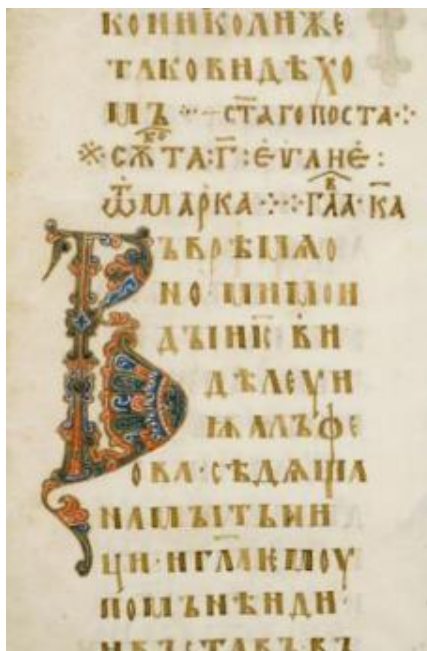 КОНИКОЛИЖЕ
ТАКОВИДѢХО
МЪ ·:· — СТ҃АГО ПОСТА·:·
※ СѪᲂбТА:Г҃: ЕѴ҃АНЕ:
Ѿ МАРКА·:·:· ГЛАв К҃А
ВЪВРѢМѦО
НО МИМОИ
ДЪІИС҃ ВИ
ДѢЛЕѴИ
ѬАЛЪФЕ
ОВА·СѢДѦЩА
НАМЪІТЬНИ
ЦИ·ИГЛ҃АѤМОУ
ПОМЪНѢИДИ·
ИВЪСТАВЪВЪ